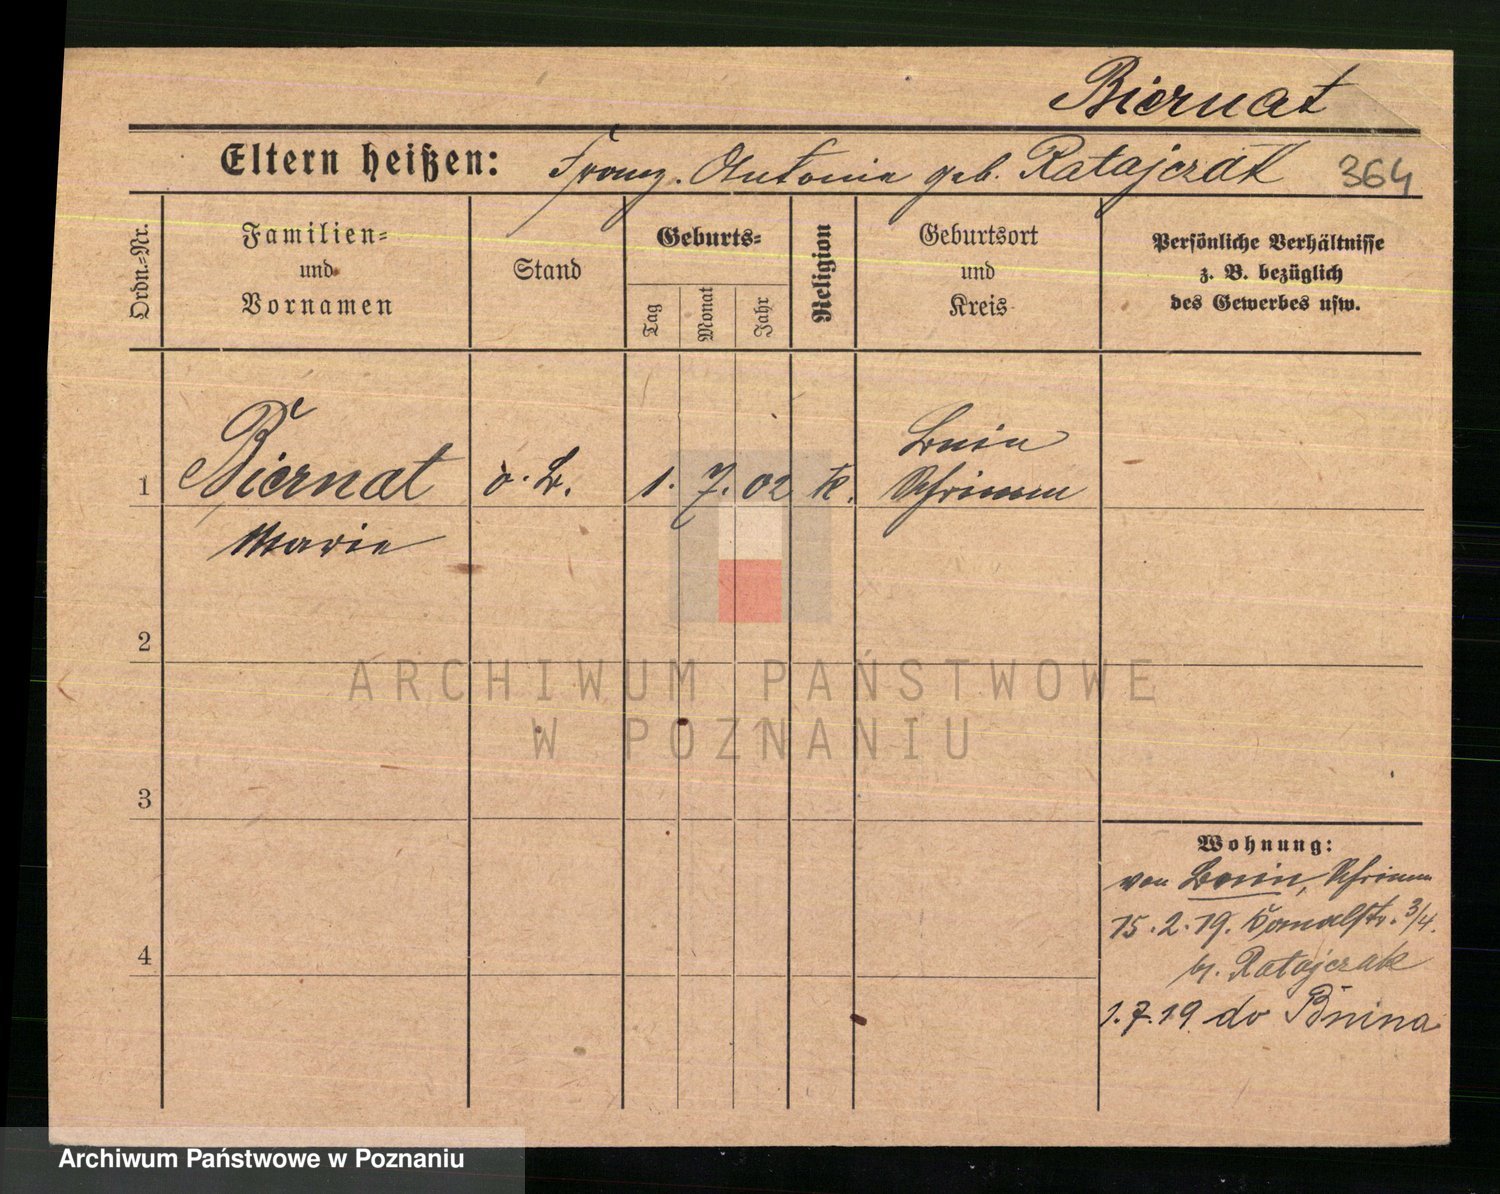 Biernat
Eltern heißen: Franz. Antonie geb. Ratajczak 364
Ordn.=Nr.
Familien=
und
Vornamen
Stand
Geburts=
Tag
Monat
Jahr
Religion
Geburtsort
und
Kreis
Persönliche Verhältnisse
z. B. bezüglich
des Gewerbes usw.
1 Biernat o. B. 1. 7. 02 k. Bnin
Schrimm
Marie
2
3
4
Wohnung:
von Bnin, Schrimm
15.2.19. 3/4.
b. Ratajczak
1.7.19 do Bnina
ARCHIWUM PAŃSTWOWE
W POZNANIU
Archiwum Państwowe w Poznaniu